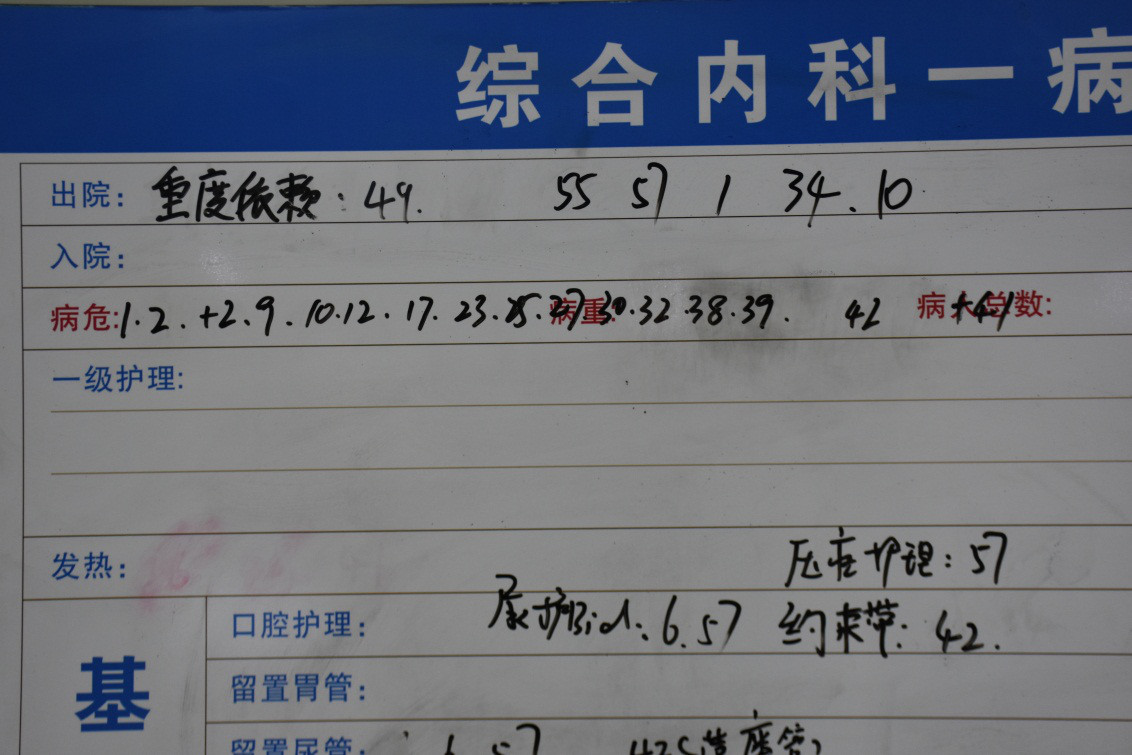 综合内科一病
出院: 重度依赖: 49. 55 57 1 34. 10
入院:
病危: 1. 2. +2. 9. 10. 12. 17. 23. 25. 27 病重: 30. 32. 38. 39. 42 病人总数: +41
一级护理:
发热: 压疮护理: 57
基
口腔护理: 尿护Bid: 6. 57 约束带: 42.
留置胃管:
留置尿管: 6. 57